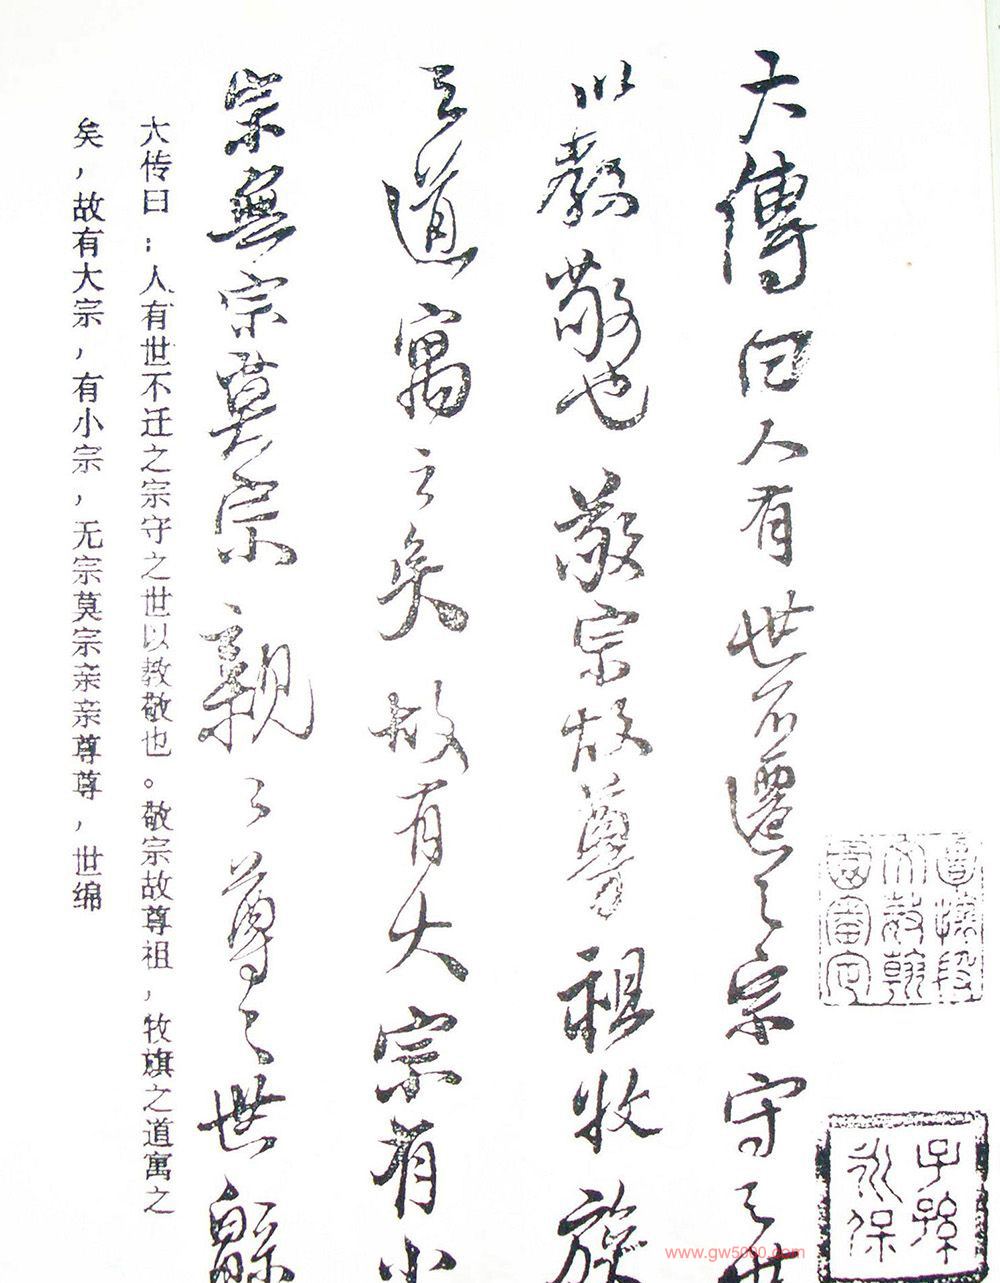 大傳曰人有世不遷之宗守之世
以教敬也敬宗故尊祖牧族
之道寓之矣故有大宗有小
宗無宗莫宗親〻尊〻世緜
大传曰：人有世不迁之宗守之世以教敬也。敬宗故尊祖，牧旗之道寓之
矣，故有大宗，有小宗，无宗莫宗亲亲尊尊，世绵
子孫
永保
www.gw5000.com